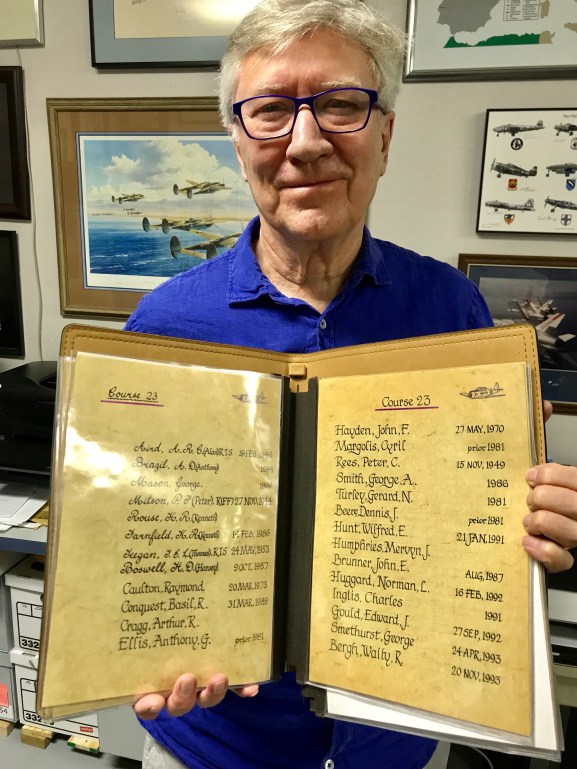 Course 23
Aird, A.R. 19 FEB,
Brazil, A.D.(Anthony)
Mason, George.
Mitson, (Peter). 27 NOV, 2014
Rouse, K.R.(Kenneth)
K.R.(Kenneth) 17 FEB, 1986
(Thomas). 24 MAY, 1953
Boswell, H.D.(Harvey) 9 OCT, 1957
Caulton, Raymond 20 MAR, 1975
Conquest, Basil, R. 31 MAR, 1989
Cragg, Arthur, R.
Ellis, Anthony, G. prior 1981
Course 23
Hayden, John, F. 27 MAY, 1970
Margolis, Cyril prior 1981
Rees, Peter, C. 15 NOV, 1949
Smith, George, A. 1986
Turley, Gerard, N. 1981
Beere, Dennis, J. prior 1981
Hunt, Wilfred, E. 21 JAN, 1991
Humphries, Mervyn, J.
Brunner, John, E. AUG, 1987
Huggard, Norman, L. 16 FEB, 1992
Inglis, Charles 1991
Gould, Edward, J. 27 SEP, 1992
Smethurst, George 24 APR, 1993
Bergh, Wally, R 20 NOV, 1993
332
332